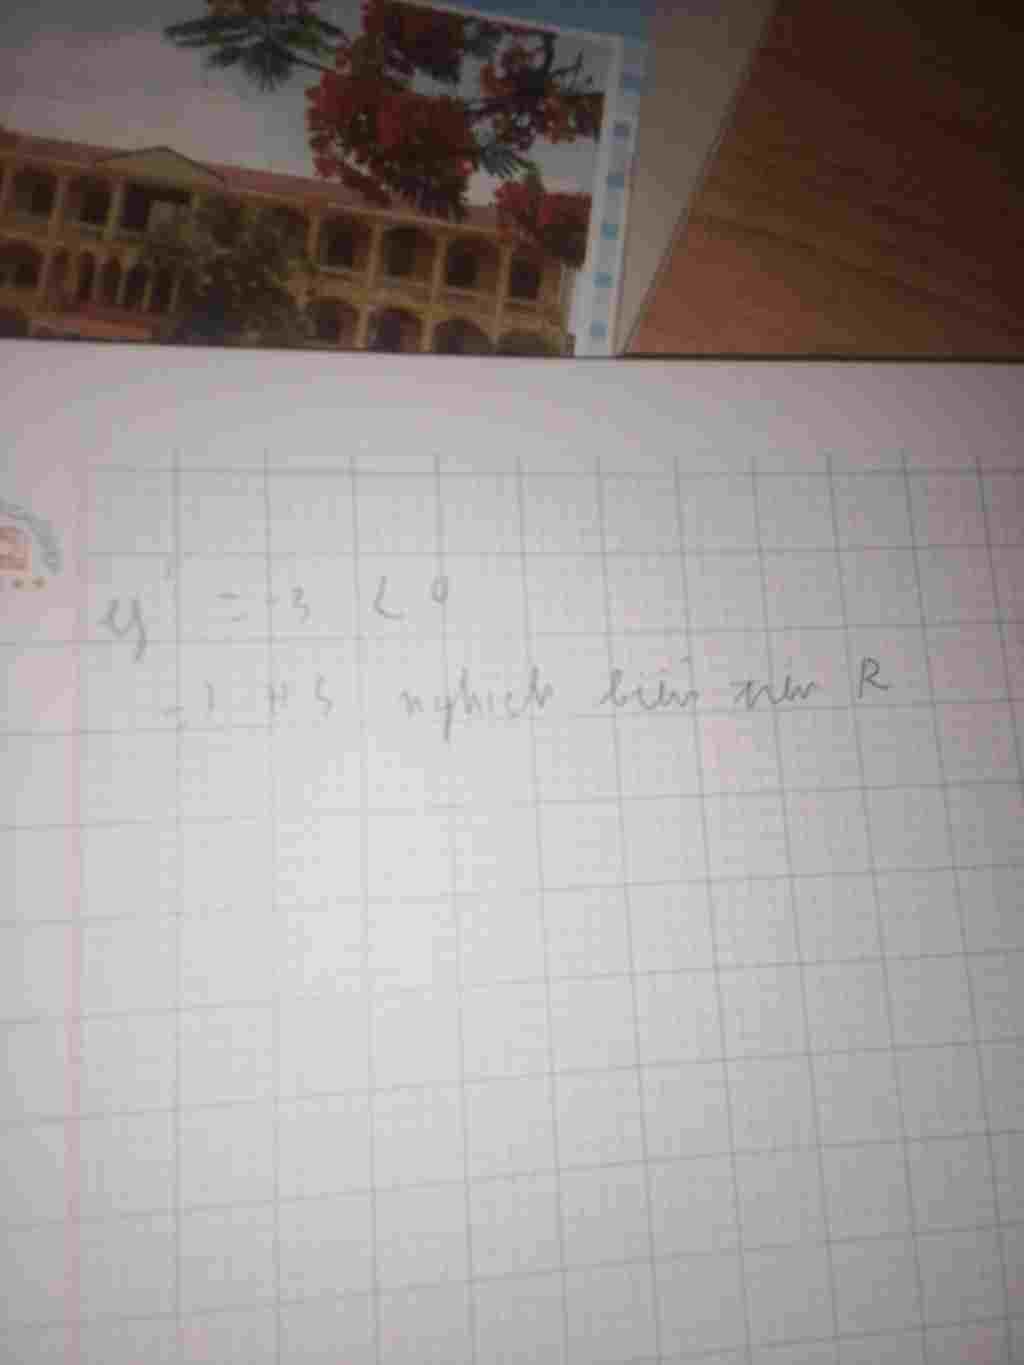 y' = -3 < 0
=> HS nghịch biến trên R